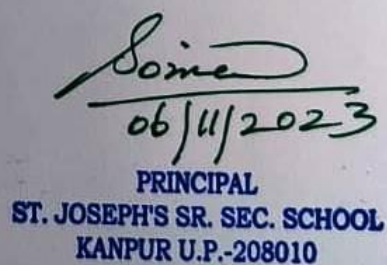 06/11/2023
PRINCIPAL
ST. JOSEPH'S SR. SEC. SCHOOL
KANPUR U.P.-208010